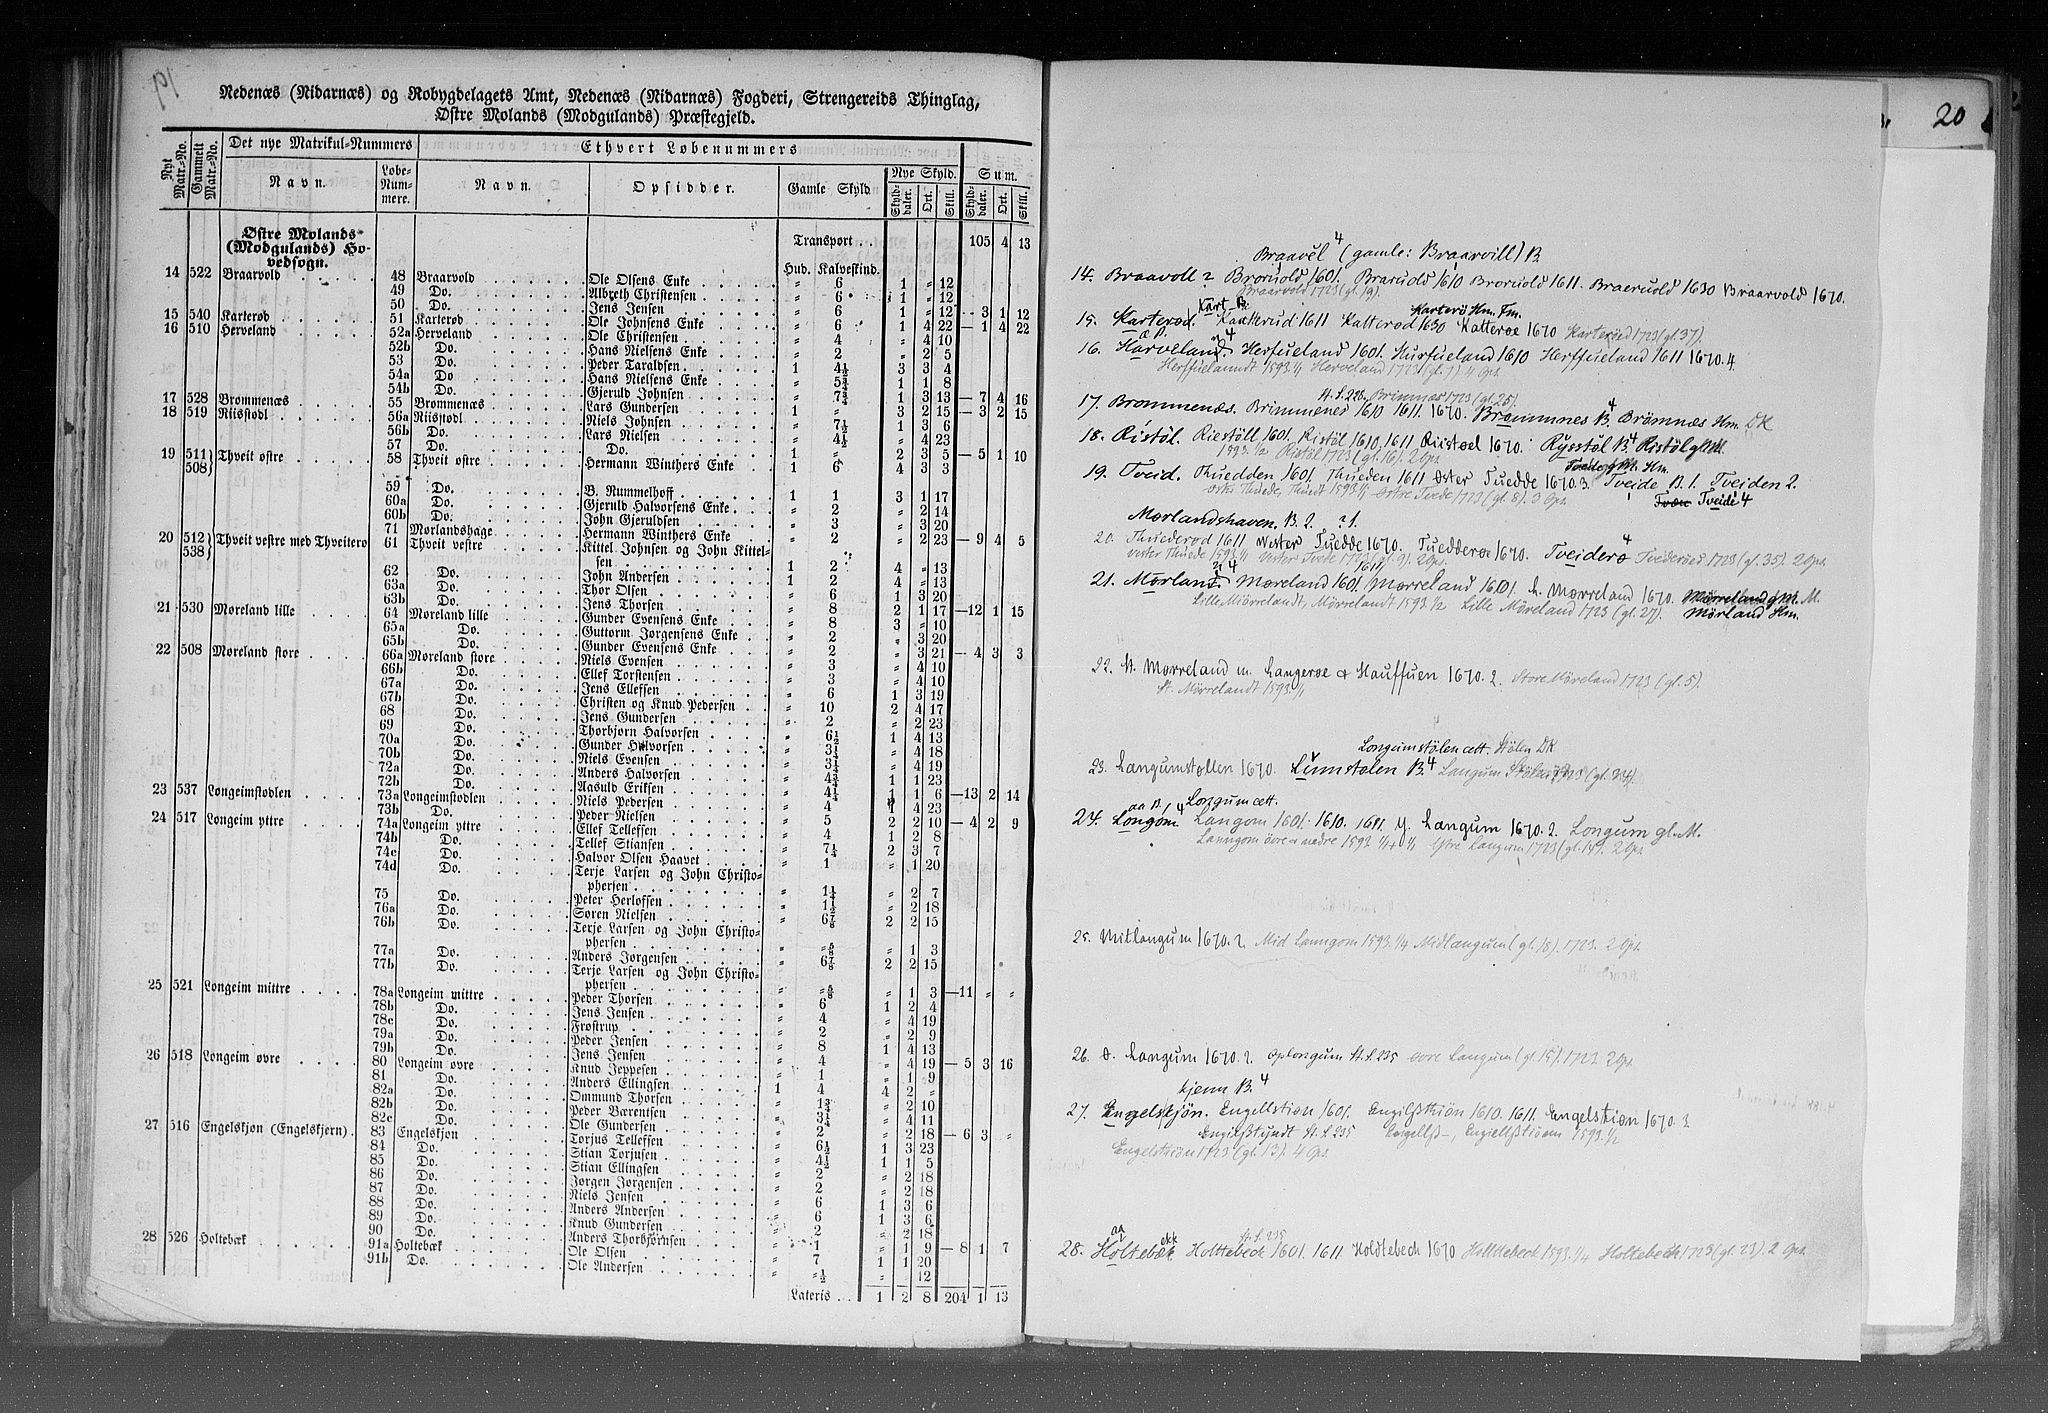 19
Nedenæs (Nidarnæs) og Robygdelagets Amt, Nedenæs (Nidarnæs) Fogderi, Strengereids Thinglag,
Østre Molands (Modgulands) Præstegjeld.
Nyt Matr.-No. Gammelt Matr.-No. Det nye Matrikul-Nummers Ethvert Løbenummers
Navn. Løbe-Nummere. Navn. Opsidder. Gamle Skyld. Nye Skyld. Sum.
Skylddaler. Ort. Skill. Skylddaler. Ort. Skill.
Østre Molands (Modgulands) Hovedsogn. Transport 105 4 13
Hud. Kalveskind.
14 522 Braarvold 48 Braarvold Ole Olsens Enke " 6 1 " 12
49 Do. Albreth Christensen " 6 1 " 12
50 Do. Jens Jensen " 6 1 " 12 — 3 1 12
15 540 Karterød 51 Karterød Ole Johnsens Enke " 6 1 4 22 — 1 4 22
16 510 Herveland 52a Herveland Ole Christensen " 4 " 4 10
52b Do. Hans Nielsens Enke " 2 " 2 5
53 Do. Peder Taraldsen 1 4½ 3 3 4
54a Do. Hans Nielsens Enke " 5¾ 1 1 8
54b Do. Gjeruld Johnsen " 7¾ 1 3 13 — 7 4 16
17 528 Brommenæs 55 Brommenæs Lars Gundersen 1 " 3 2 15 — 3 2 15
18 519 Riisstødl 56a Riisstødl Niels Johnsen " 7½ 1 3 6
56b Do. Lars Nielsen " 4½ " 4 23
57 Do. Do. 1 " 2 3 5 — 5 1 10
19 511 508 Thveit østre 58 Thveit østre Hermann Winthers Enke 1 6 4 3 3
59 Do. B. Nummelhoff 1 1 3 1 17
60a Do. Gjeruld Halvorsens Enke " 2 " 2 14
60b Do. John Gjeruldsen " 3 " 3 20
71 Morlandshage Hermann Winthers Enke " 2 " 2 23 — 9 4 5
20 512 538 Thveit vestre med Thveiterø 61 Thveit vestre Kittel Johnsen og John Kittelsen 1 2 4 " 13
62 Do. John Andersen 1 2 4 " 13
63a Do. Thor Olsen " 6 1 3 20
63b Do. Jens Thorsen " 8 2 1 17 — 12 1 15
21 530 Møreland lille 64 Møreland lille Gunder Evensens Enke " 8 3 " 10
65a Do. Guttorm Jørgensens Enke " 2 " 3 20
65b Do. Gunder Evensens Enke " 2 " 3 21 — 4 3 3
22 508 Møreland store 66a Møreland store Niels Evensen " 3 " 4 10
66b Do. Ellef Torstensen " 3 " 4 10
67a Do. Jens Ellefsen " 6 1 3 19
67b Do. Christen og Knud Pedersen " 10 2 4 17
68 Do. Jens Gundersen " 2 " 2 23
69 Do. Thorbjørn Halvorsen " 6½ 1 4 13
70a Do. Gunder Halvorsen " 3¼ " 4 18
70b Do. Niels Evensen " 3¼ " 4 19
72a Do. Anders Halvorsen " 4¾ 1 1 23
72b Do. Aasuld Eriksen " 4¼ 1 1 6 — 13 2 14
23 537 Longeimstødlen 73a Longeimstødlen Niels Pedersen " 4 1 4 23
73b Do. Peder Nielsen " 5 2 2 10 — 4 2 9
24 517 Longeim yttre 74a Longeim yttre Ellef Tellefsen " 4 1 2 8
74b Do. Tellef Stiansen " 7¼ 2 3 7
74c Do. Halvor Olsen Haavet " 1 " 1 20
74d Do. Terje Larsen og John Christophersen " 1¼ " 2 7
75 Do. Peter Herlofsen " 1½ " 2 18
76a Do. Søren Nielsen " 6⅞ 2 2 15
76b Do. Terje Larsen og John Christophersen " ⅝ " 1 3
77a Do. Anders Jørgensen " 6⅞ 2 2 15
77b Do. Terje Larsen og John Christophersen " ⅝ " 1 3 — 11 " "
25 521 Longeim mittre 78a Longeim mittre Peder Thorsen " 6 1 2 4
78b Do. Jens Jensen " 4 " 4 19
78c Do. Frostrup " 2 " 2 9
79a Do. Peder Jensen " 8 1 4 13
79b Do. Jens Jensen " 4 " 4 19 — 5 3 16
26 518 Longeim øvre 80 Longeim øvre Knud Jeppesen " 1 " 1 9
81 Do. Anders Ellingsen 1 4 4 2 "
82a Do. Ommund Thorsen " 1¾ " 2 10
82b Do. Peder Bærentsen " 3¼ " 4 11
82c Do. Ole Gundersen " 2 " 2 18 — 6 3 "
27 516 Engelskjøn (Engelskjern) 83 Engelskjøn Torjus Tellefsen " 6½ 1 3 23
84 Do. Stian Torjusen " 4½ 1 1 5
85 Do. Stian Ellingsen " 2 " 2 18
86 Do. Jørgen Jørgensen " 2 " 2 18
87 Do. Niels Jensen " 6 1 3 6
88 Do. Anders Andersen " 6 1 3 6
89 Do. Knud Gundersen " 2 " 2 18
90 Do. Anders Thorbjørnsen " 1 " 1 9 — 8 1 7
28 526 Holtebæk 91a Holtebæk Ole Olsen " 7 1 1 20
91b Do. Ole Andersen " ½ " " 12
Lateris 1 2 8 204 1 13
20
Braavel 4 (gamle: Braarvill) B.
14. Braavoll ? Broruold 1601. Braruold 1610 Broruold 1611. Braeruold 1630 Braarvold 1670.
Braarvold 1723 (gl. 9).
Kart B. Karterø Hm. Fm.
15. Karterød. Kartterud 1611 Katterød 1630 Katterøe 1670 Karterøed 1723 (gl. 37).
16. Hørveland. Herfueland 1601. Hurfueland 1610 Herffueland 1611 1670. 4.
Herffuelanndt 1593. 1/1 Herveland 1723 (gl. 7) 4 Ops.
St. S. 235. Brimnæs 1723 (gl. 25).
17. Brommenæs. Brimmenes 1610 1611. 1670. Brommnes B. 4 Brömnæs Hm. DK
18. Ristøl. Riestöll 1601. Ristöl 1610. 1611 Riistoel 1670. Rysstøl B 4 Ristöl gl. M.
1593. 1/2 Ristøl 1723 (gl. 16). 2 Ops.
Tveide gl. M. Hm.
19. Tveid. Thuedden 1601. Thueden 1611 Øster Tuedde 1670. 3. Tveide B. 1. Tveiden 2.
Øster Thuede, Thuedt 1593. 1/1 Østre Tvede 1723 (gl. 8). 3 Ops. Tveide 4
Mørlandshaven. B. 2. ? 1.
20. Thuederød 1611 Wester Tuedde 1670. Tuedderøe 1670. Tveiderø 4 Tvederøed 1723 (gl. 35). 2 Ops.
Vester Thuede 1593. 1/1 Vester Tvede 1723 (gl. 9). 2 Ops.
21. Mørland. 4 Møreland 1601. Mørreland 1610. 1611 L. Mørreland 1670. Mørreland gl. M.
Lille Mörrelandt, Mørrelandt 1593. 1/2 Lille Møreland 1723 (gl. 27). Mørland Hm.
22. St. Mørreland m. Langerøe & Hauffuen 1670. 2. Store Møreland 1723 (gl. 5).
St. Mørrelandt 1593. 1/1
Longumstølen cett. Stølen DK
23. Langumstøllen 1670. Lumstølen B. 4 Langum Støler 1723 (gl. 34).
aa B. 4 Longum cett.
24. Longom Langom 1601. 1610. 1611. Y. Langum 1670. 2. Longum gl. M.
Lanngom øvre og nædre 1593. 1/4 1/1 Ystre Langum 1723 (gl. 14). 2 Ops.
25. Mitlangum 1670. 2. Mid Lanngom 1593. 1/4 Midlangum (gl. 18). 1723. 2 Ops.
26. Ø. Langum 1670. 2. Oplongum St. S. 235 øvre Langum (gl. 15). 1723. 2 Ops.
kjenn B. 4
27. Engelskjön. Engellstiøn 1601. Engilsthiön 1610. 1611. Engelstiøn 1670. 3.
Engilßtyndt St. S. 235 Engellß-, Engiellßtiöenn 1593. 1/2
Engelstiøn 1723 (gl. 13). 4 Ops.
aa ekk St. S. 235
28. Holtebæk. Holttebeck 1601. 1611. Holdtebeck 1670 Holltdebeck 1593. 1/4 Holtebech 1723 (gl. 23). 2 Ops.